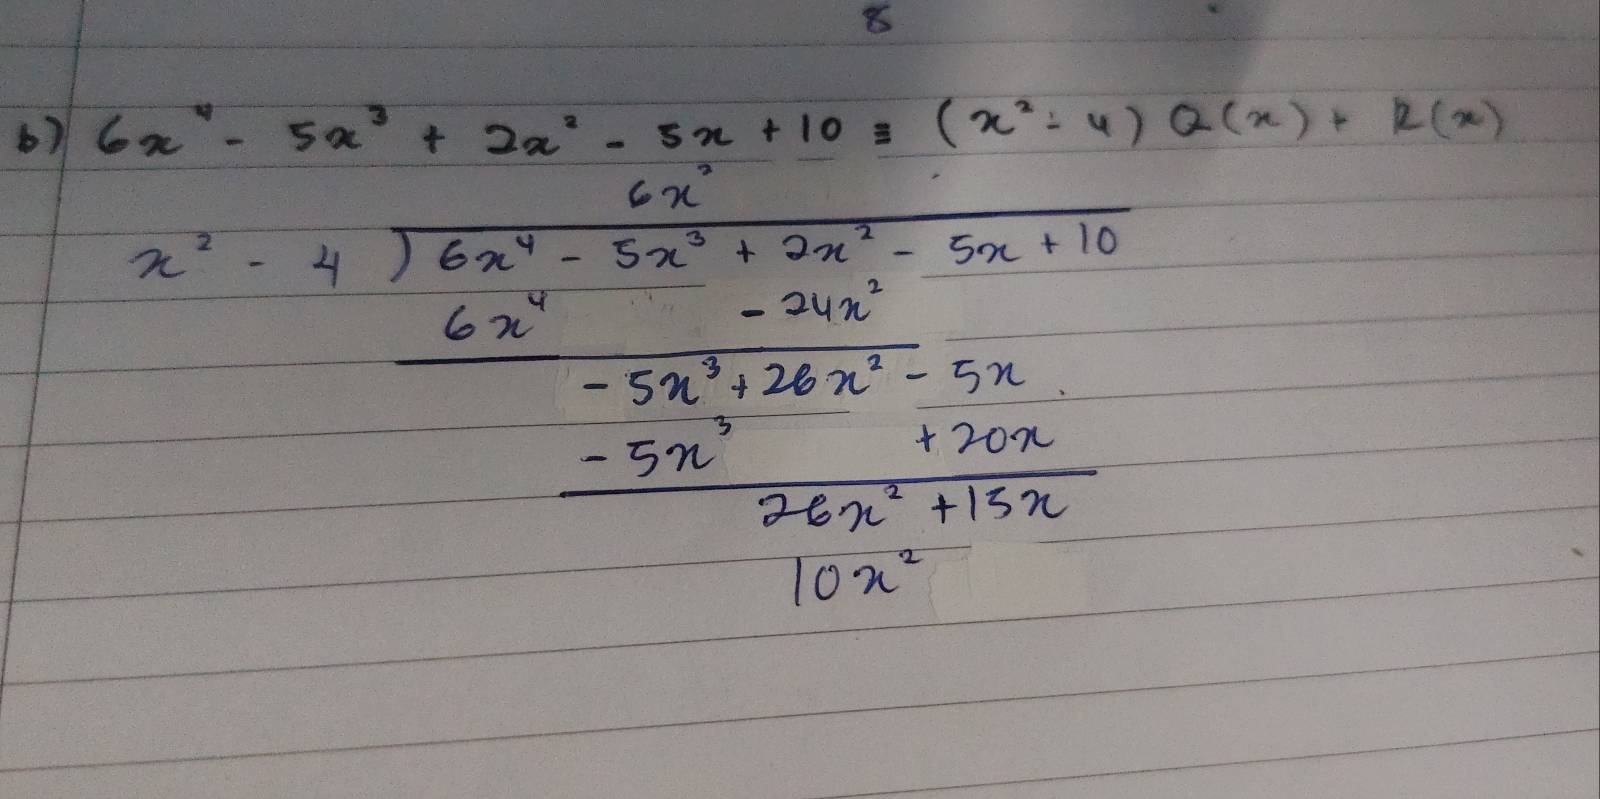 8
b) 6x⁴ - 5x³ + 2x² - 5x + 10 ≡ (x² - 4) Q(x) + R(x)
6x²
x² - 4 ) 6x⁴ - 5x³ + 2x² - 5x + 10
6x⁴ - 24x²
- 5x³ + 26x² - 5x
- 5x³ + 20x
26x² + 15x
10x²